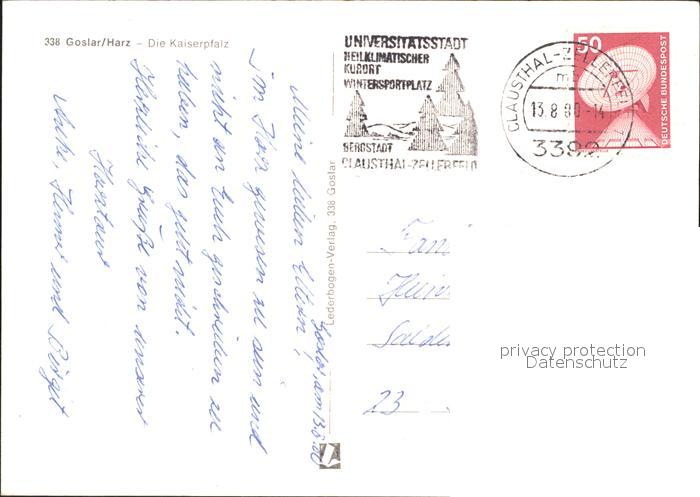 338 Goslar/Harz – Die Kaiserpfalz
UNIVERSITÄTSSTADT
HEILKLIMATISCHER
KURORT
WINTERSPORTPLATZ
BERGSTADT
CLAUSTHAL-ZELLERFELD
CLAUSTHAL-ZELLERFELD
13.8.80-14
3392
50
DEUTSCHE BUNDESPOST
Lederbogen-Verlag, 338 Goslar
Goslar, am 13.8.80
Meine lieben Eltern,
im Harz gewesen zu sein und
nicht an Euch geschrieben zu
haben, das geht nicht.
Herzliche Grüße von unserer
Harztour
Heimer und Birgit
Fami
Hein
23
privacy protection
Datenschutz